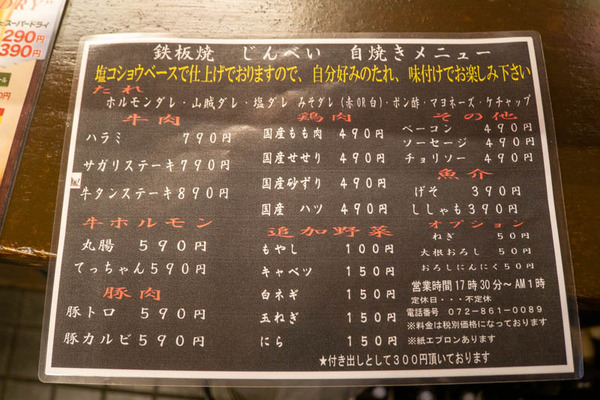 スーパードライ
290円
390円
鉄板焼 じんべい 自焼きメニュー
塩コショウベースで仕上げておりますので、自分好みのたれ、味付けでお楽しみ下さい
たれ
ホルモンダレ・山賊ダレ・塩ダレ みそダレ(赤OR白)・ポン酢・マヨネーズ・ケチャップ
牛肉
ハラミ 790円
サガリステーキ790円
牛タンステーキ890円
牛ホルモン
丸腸 590円
てっちゃん590円
豚肉
豚トロ 590円
豚カルビ590円
鶏肉
国産もも肉 490円
国産せせり 490円
国産砂ずり 490円
国産 ハツ 490円
追加野菜
もやし 100円
キャベツ 150円
白ネギ 150円
玉ねぎ 150円
にら 150円
その他
ベーコン 490円
ソーセージ 490円
チョリソー 490円
魚介
げそ 390円
ししゃも390円
オプション
ねぎ 50円
大根おろし 50円
おろしにんにく50円
営業時間17時30分~AM1時
定休日・・・不定休
電話番号 072-861-0089
※料金は税別価格になっております
※紙エプロンあります
★付き出しとして300円頂いております